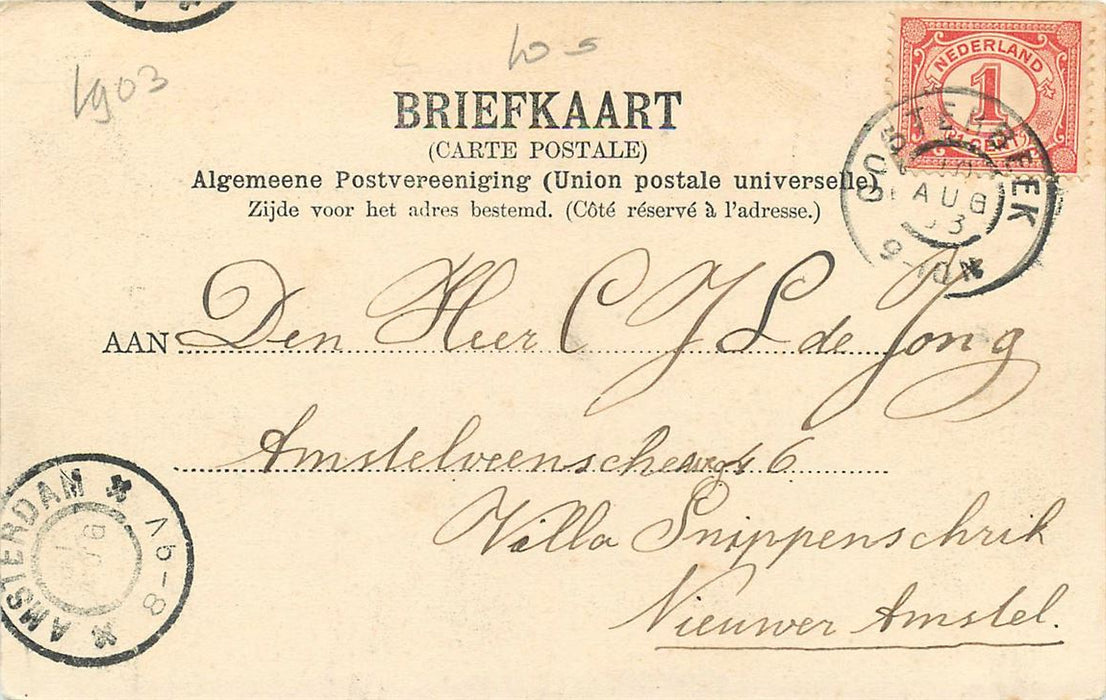 1903
10 5
NEDERLAND
1
1 CENT
OOSTERBEEK
AUG
03
9-10N
BRIEFKAART
(CARTE POSTALE)
Algemeene Postvereeniging (Union postale universelle)
Zijde voor het adres bestemd. (Côté réservé à l'adresse.)
AAN Den Heer C J L de Jong
Amstelveenscheweg 46
Villa Snippenschrik
Nieuwer Amstel.
AMSTERDAM
V 6-8
AUG